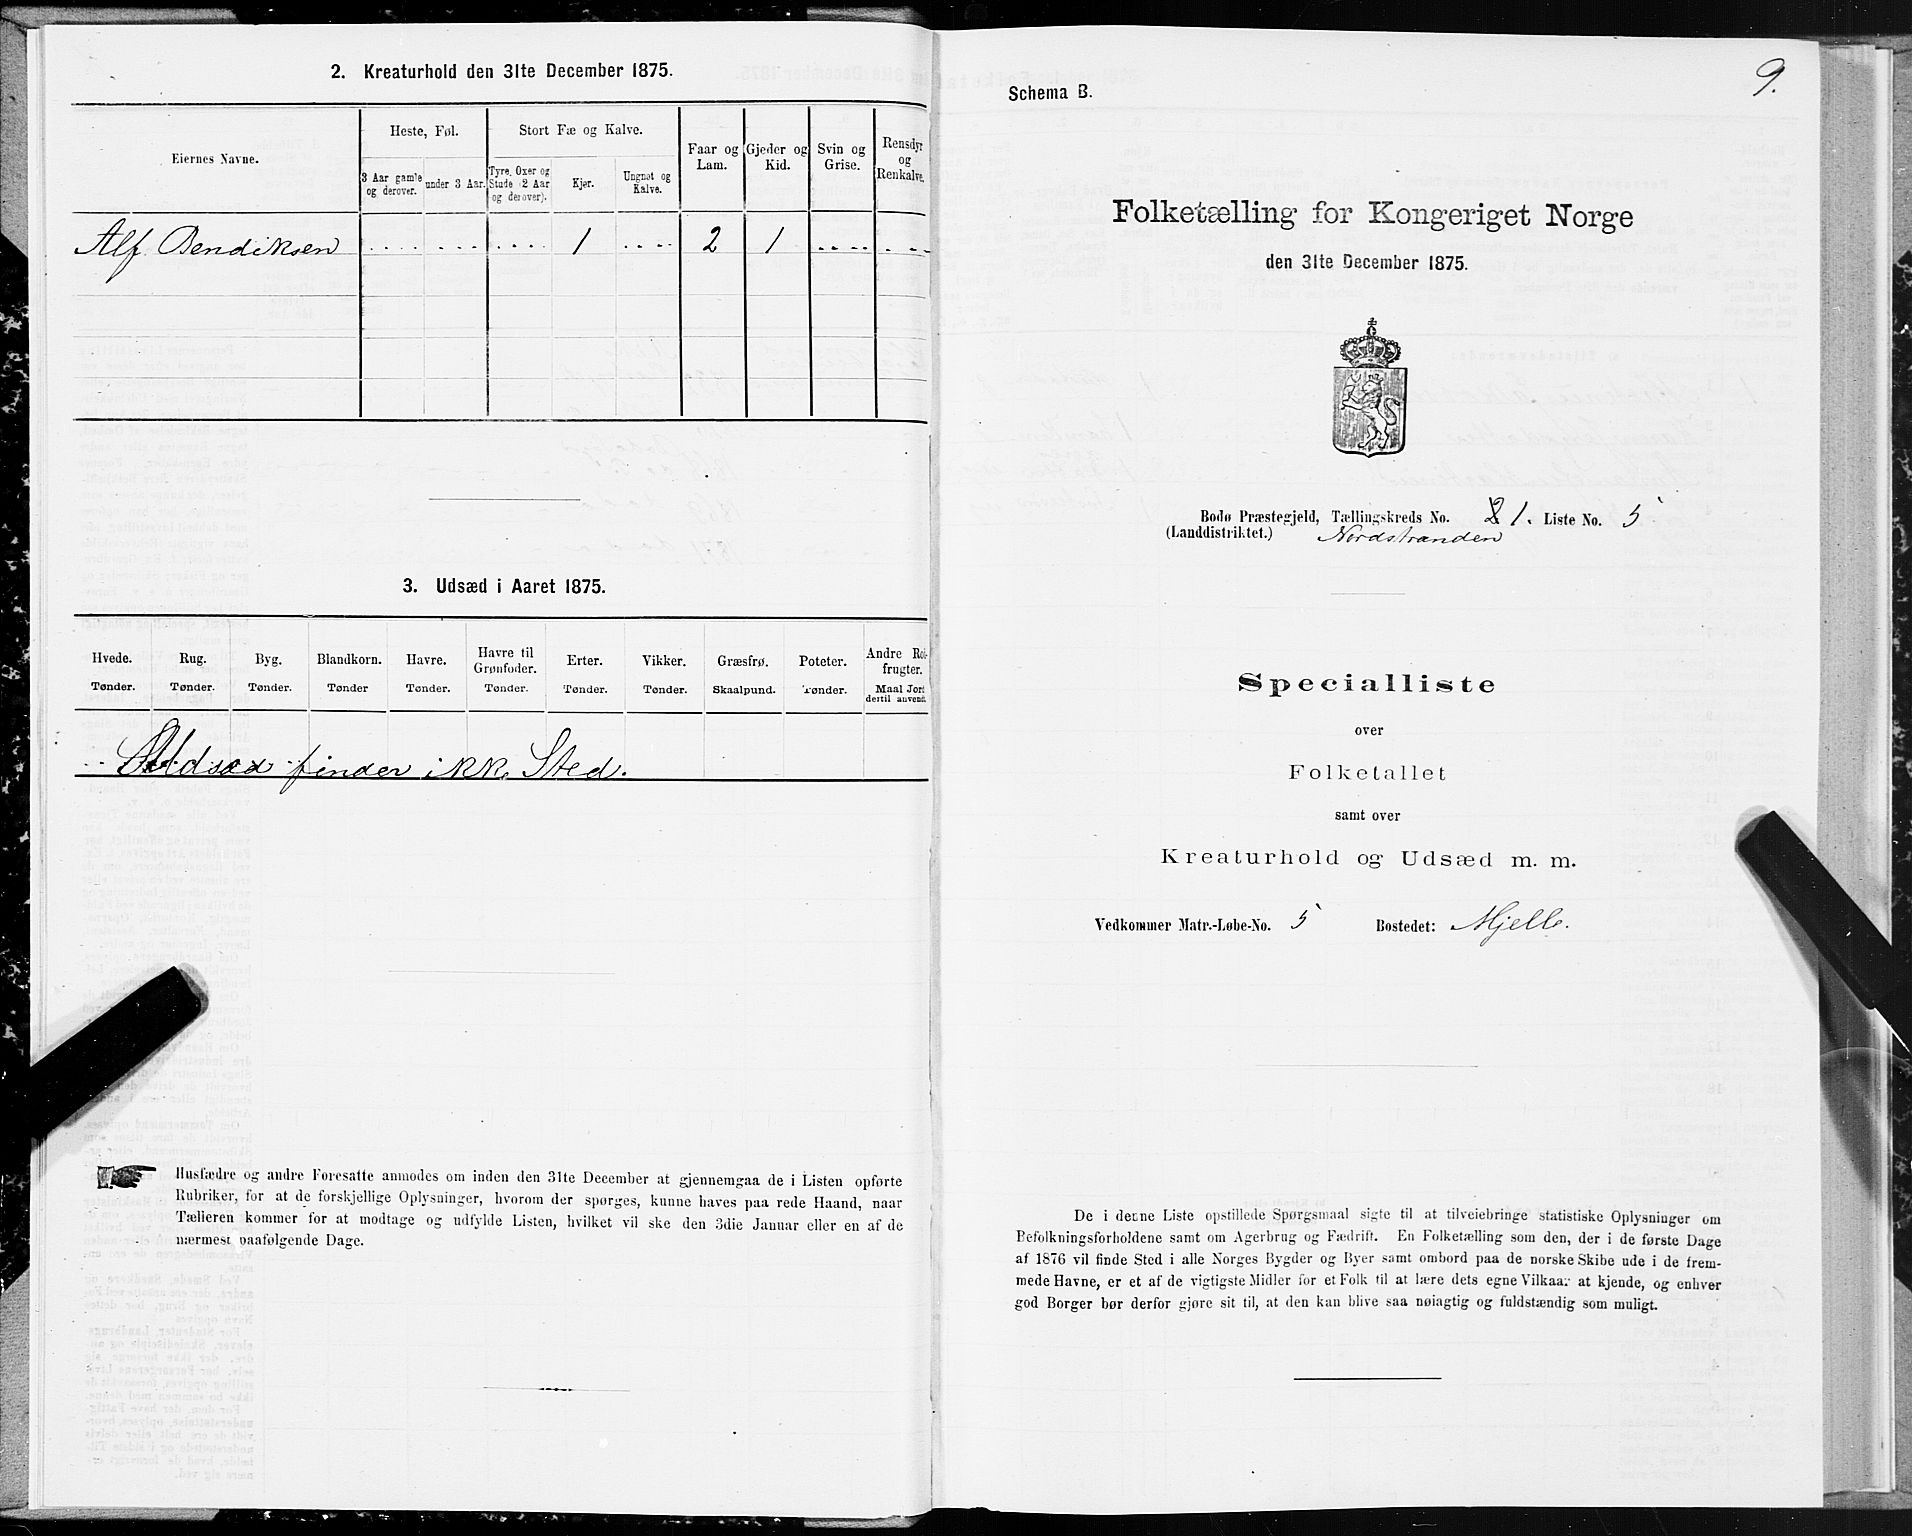 2. Kreaturhold den 31te December 1875.
Eiernes Navne.
Heste, Føl.
Stort Fæ og Kalve.
Faar og Lam.
Gjeder og Kid.
Svin og Grise.
Rensdyr og Renkalve.
3 Aar gamle og derover.
under 3 Aar.
Tyre, Oxer og Stude (2 Aar og derover).
Kjør.
Ungnøt og Kalve.
Alf Bendiksen .... .... .... 1 .... 2 1 .... ....
3. Udsæd i Aaret 1875.
Hvede. Rug. Byg. Blandkorn. Havre. Havre til Grønfoder. Erter. Vikker. Græsfrø. Poteter. Andre Rodfrugter.
Tønder. Tønder. Tønder. Tønder Tønder. Tønder. Tønder. Tønder. Skaalpund. Tønder. Maal Jord dertil anvendt.
Udsæd finder ikke Sted.
Husfædre og andre Foresatte anmodes om inden den 31te December at gjennemgaa de i Listen opførte
Rubriker, for at de forskjellige Oplysninger, hvorom der spørges, kunne haves paa rede Haand, naar
Tælleren kommer for at modtage og udfylde Listen, hvilket vil ske den 3die Januar eller en af de
nærmest paafølgende Dage.
9.
Schema B.
Folketælling for Kongeriget Norge
den 31te December 1875.
Bodø Præstegjeld, Tællingskreds No. 1. Liste No. 5
(Landdistriktet.) Nordstranden
Specialliste
over
Folketallet
samt over
Kreaturhold og Udsæd m. m.
Vedkommer Matr.-Løbe-No. 5 Bostedet: Mjelle.
De i denne Liste opstillede Spørgsmaal sigte til at tilveiebringe statistiske Oplysninger om
Befolkningsforholdene samt om Agerbrug og Fædrift. En Folketælling som den, der i de første Dage
af 1876 vil finde Sted i alle Norges Bygder og Byer samt ombord paa de norske Skibe ude i de frem-
mede Havne, er et af de vigtigste Midler for et Folk til at lære dets egne Vilkaar at kjende, og enhver
god Borger bør derfor gjøre sit til, at den kan blive saa nøiagtig og fuldstændig som muligt.